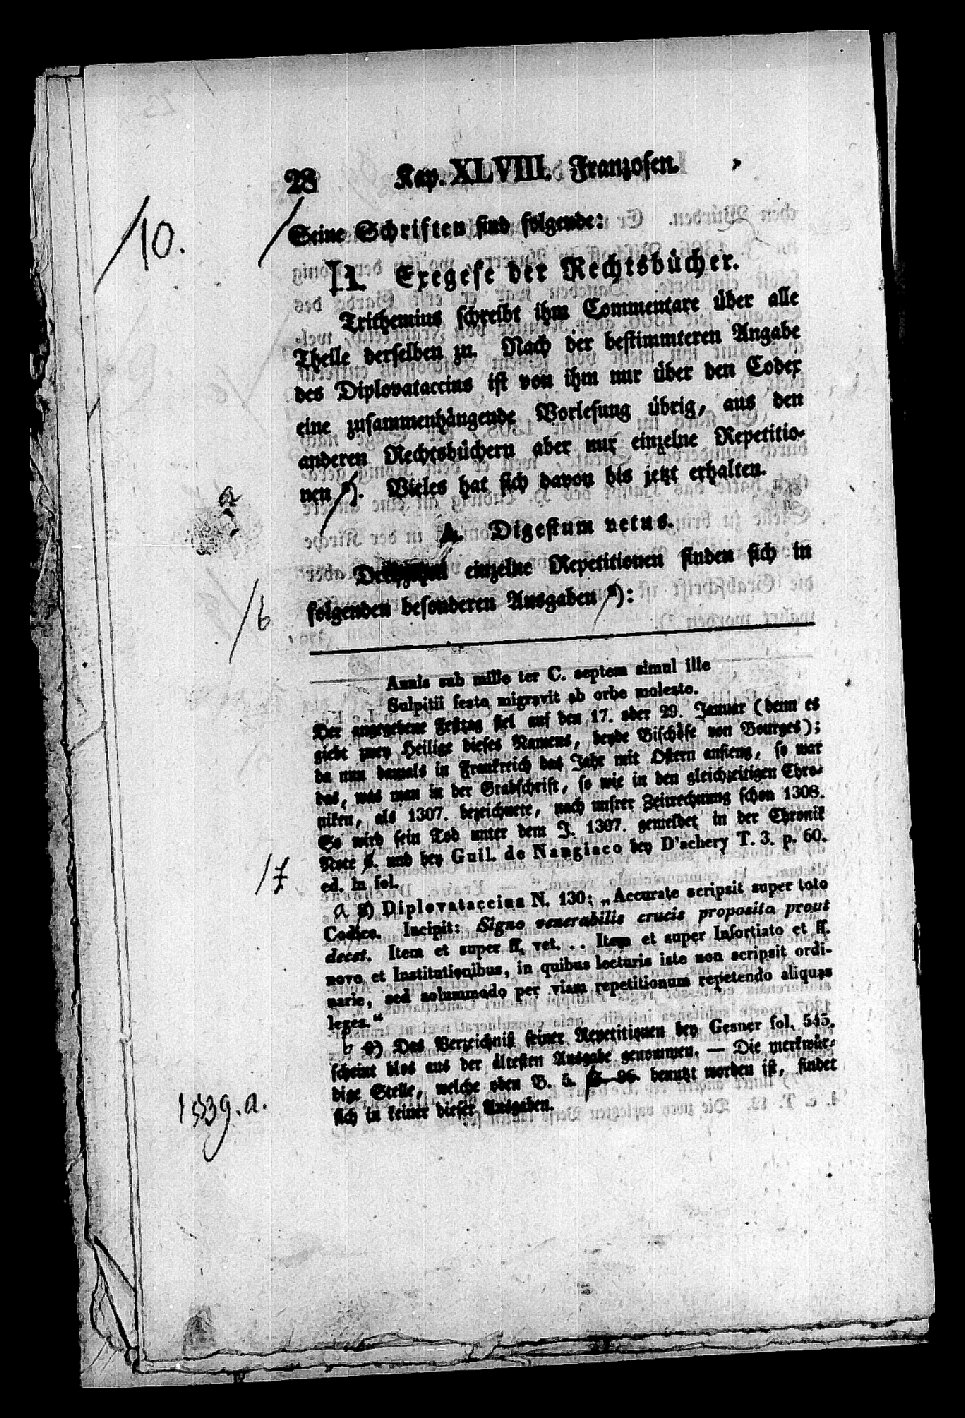 28 Kap. XLVIII. Franzosen.
10.
Seine Schriften sind folgende:
I. Exegese der Rechtsbücher.
Trithemius schreibt ihm Commentare über alle
Theile derselben zu. Nach der bestimmteren Angabe
des Diplovataccius ist von ihm nur über den Codex
eine zusammenhängende Vorlesung übrig, aus den
anderen Rechtsbüchern aber nur einzelne Repetitio-
nen ). Vieles hat sich davon bis jetzt erhalten.
a
A. Digestum vetus.
einzelne Repetitionen finden sich in
folgenden besonderen Ausgaben ):
b
Annis sub mille ter C. septem simul ille
Sulpitii festa migravit ab orbe moleste.
Der angegebene Festtag fiel auf den 17. oder 29. Januar (denn es
giebt zwey Heilige dieses Namens, beyde Bischöfe von Bourges);
da nun damals in Frankreich das Jahr mit Ostern anfieng, so war
das, was man in der Grabschrift, so wie in den gleichzeitigen Chro-
niken, als 1307. bezeichnete, nach unsrer Zeitrechnung schon 1308.
So wird sein Tod unter dem J. 1307. gemeldet in der Chronik
Note und bey Guil. de Nangiaco bey D'achery T. 3. p. 60.
ed. in fol.
a ) Diplovataccius N. 130: „Accurate scripsit super toto
Codice. Incipit: Signo venerabilis crucis proposita prout
decet. Item et super ff. vet. . . Item et super Infortiato et ff.
novo et Institutionibus, in quibus lecturis iste non scripsit ordi-
narie, sed solummodo per viam repetitionum repetendo aliquas
leges.“
b ) Das Verzeichniß seiner Repetitionen bey Gesner fol. 545.
scheint blos aus der ältesten Ausgabe genommen. — Die merkwür-
dige Stelle, welche oben B. 5. benutzt worden ist, findet
sich in keiner dieser Ausgaben.
1539.a.